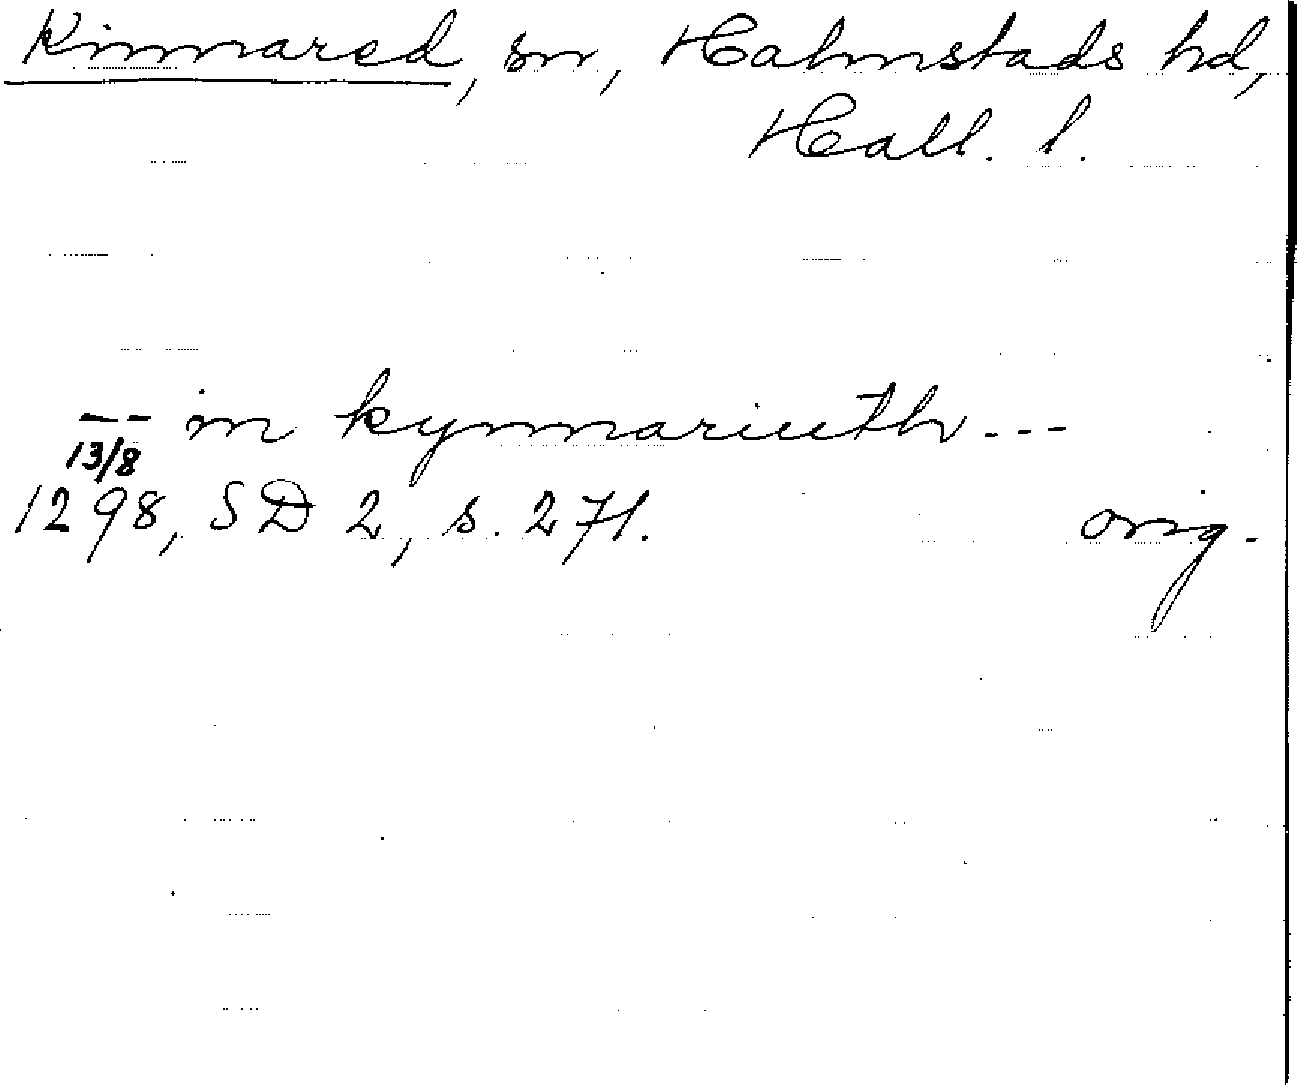 Kinnared, sn, Halmstads hd,
Hall. l.
-- in kynnariuth ---
13/8
1298, SD 2, s. 271.
orig.